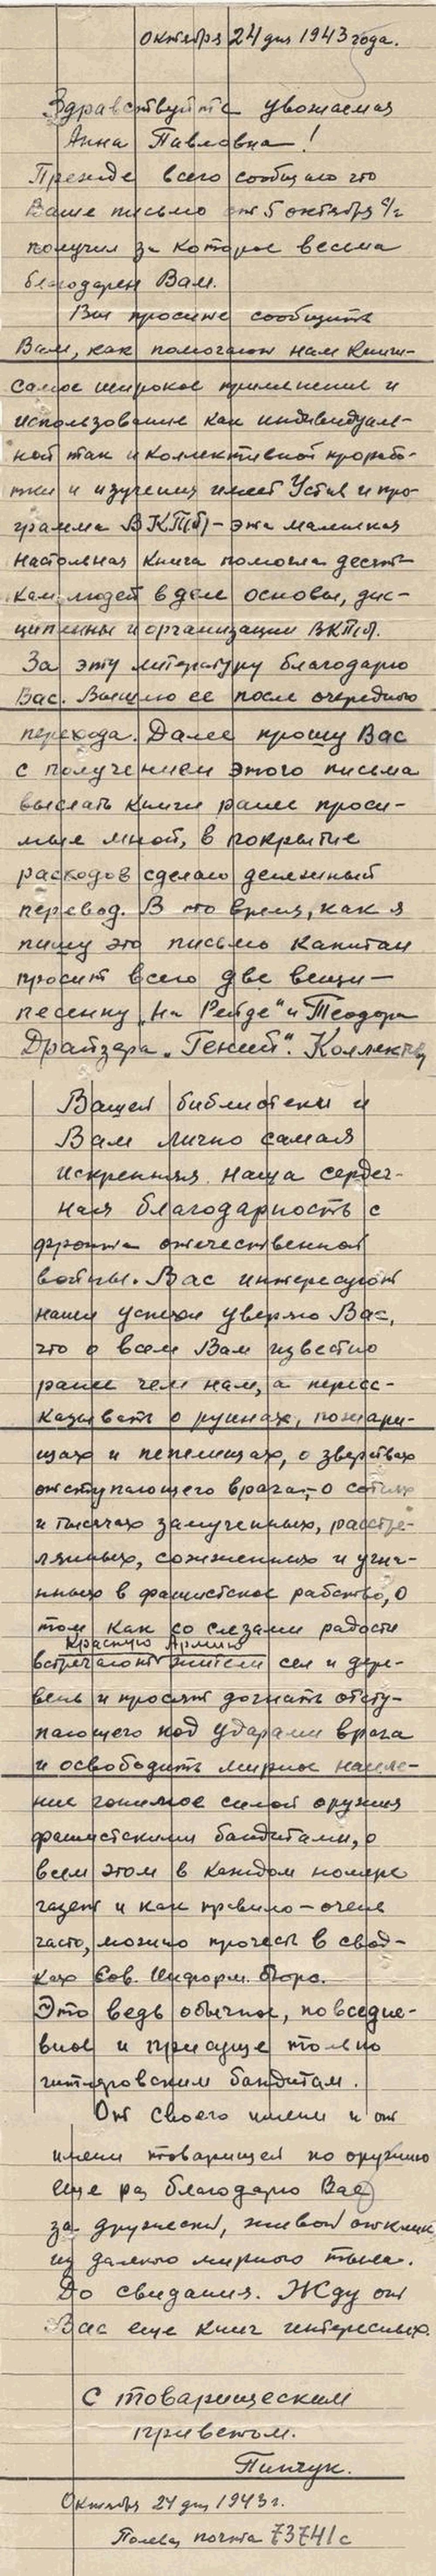 октября 24 дня 1943 года.
Здравствуйте уважаемая
Анна Павловна!
Прежде всего сообщаю что
Ваше письмо от 5 октября с/г
получил за которое весьма
благодарен Вам.
Вы просите сообщить
Вам, как помогают нам книги-
самое широкое применение и
использование как индивидуаль-
ной так и коллективной прорабо-
тки и изучения имеет Устав и про-
грамма ВКП(б) - эта маленькая
настольная книга помогла десят-
кам людей в деле основы, дис-
циплины и организации ВКП(б).
За эту литературу благодарю
Вас. Вышлю ее после очередного
перехода. Далее прошу Вас
с получением этого письма
выслать книги ранее проси-
мые мной, в покрытие
расходов сделаю денежный
перевод. В то время, как я
пишу это письмо капитан
просит всего две вещи —
песенку „На Рейде" и Теодора
Драйзера „Гений". Коллективу
Вашей библиотеки и
Вам лично самая
искренняя наша сердеч-
ная благодарность с
фронта отечественной
войны. Вас интересуют
наши успехи уверяю Вас,
что о всем Вам известно
ранее чем нам, а переса-
казывать о руинах, пожари-
щах и пепелищах, о зверствах
отступающего врага,- о сотнях
и тысячах замученных, расстре-
лянных, сожженных и угна-
нных в фашистское рабство, о
том как со слезами радости
Красную Армию
встречают жители сел и дере-
вень и просят догнать отсту-
пающего под ударами врага
и освободить мирное населе-
ние гонимое силой оружия
фашистскими бандитами, о
всем этом в каждом номере
газет и как правило - очень
часто, можно прочесть в свод-
ках Сов. Информ. бюро.
Это ведь обычное, повседне-
вное и присуще только
гитлеровским бандитам.
От своего имени и от
имени товарищей по оружию
еще раз благодарю Вас
за дружеский, живой отклик
из далекого мирного тыла.
До свидания. Жду от
Вас еще книг интересных.
С товарищеским
приветом.
Пинчук.
Октября 24 дня 1943 г.
Полевая почта 73741с